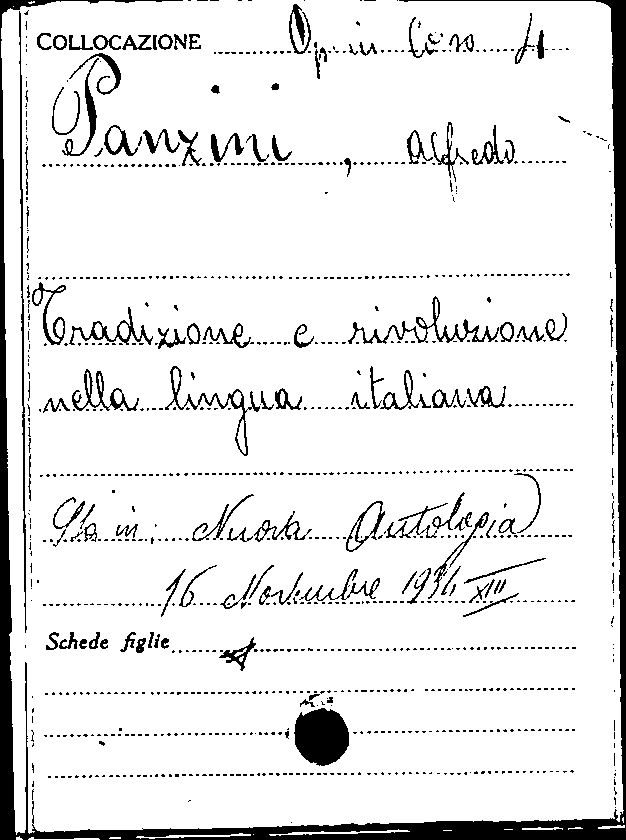 COLLOCAZIONE Op. in Coro 4
Panzini, Alfredo
Tradizione e rivoluzione
nella lingua italiana
Sta in: Nuova Antologia
16 Novembre 1934 XIII
Schede figlie